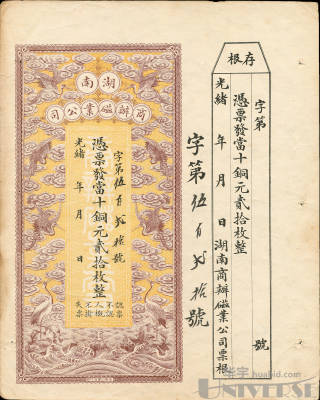 湖南
商辦磁業公司
字第伍百貳拾號
憑票發當十銅元貳拾枚整
光緒 年 月 日
認票不認人
失票不掛號
字第伍百貳拾號
存根
字第 號
憑票發當十銅元貳拾枚整
光緒 年 月 日湖南商辦磁業公司票根
华宇 huabid.com
UNIVERSE